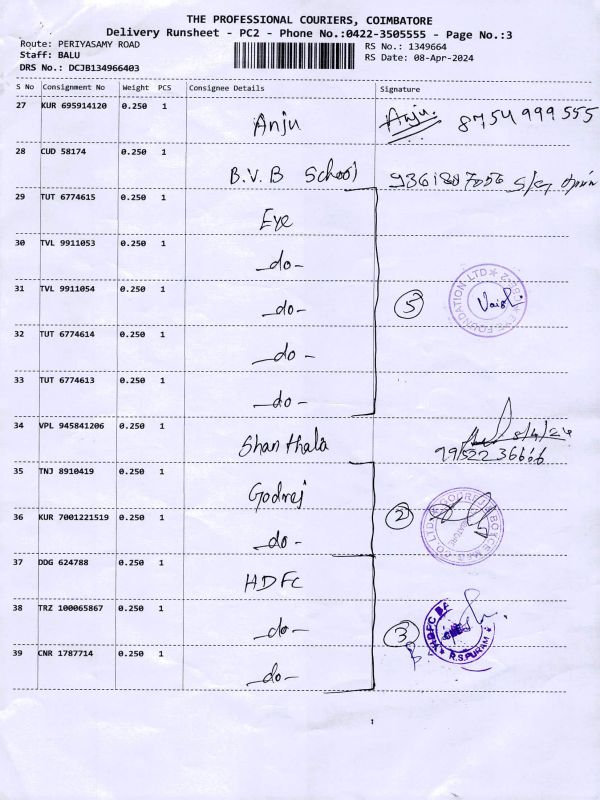 THE PROFESSIONAL COURIERS, COIMBATORE
Delivery Runsheet - PC2 - Phone No.:0422-3505555 - Page No.:3
Route: PERIYASAMY ROAD
RS No.: 1349664
Staff: BALU
RS Date: 08-Apr-2024
DRS No.: DCJB134966403
S No Consignment No Weight PCS Consignee Details Signature
27 KUR 695914120 0.250 1 Anju Anju. 8754999555
28 CUD 58174 0.250 1 B.V.B School
29 TUT 6774615 0.250 1 Eye
30 TVL 9911053 0.250 1 -do-
31 TVL 9911054 0.250 1 -do- 5
32 TUT 6774614 0.250 1 -do-
33 TUT 6774613 0.250 1 -do-
34 VPL 945841206 0.250 1 Shanthala 8/4/24
35 TNJ 8910419 0.250 1 Godrej
36 KUR 7001221519 0.250 1 -do- 2
37 DDG 624788 0.250 1 HDFC
38 TRZ 100065867 0.250 1 -do- 3
R.S.PURAM
39 CNR 1787714 0.250 1 -do-